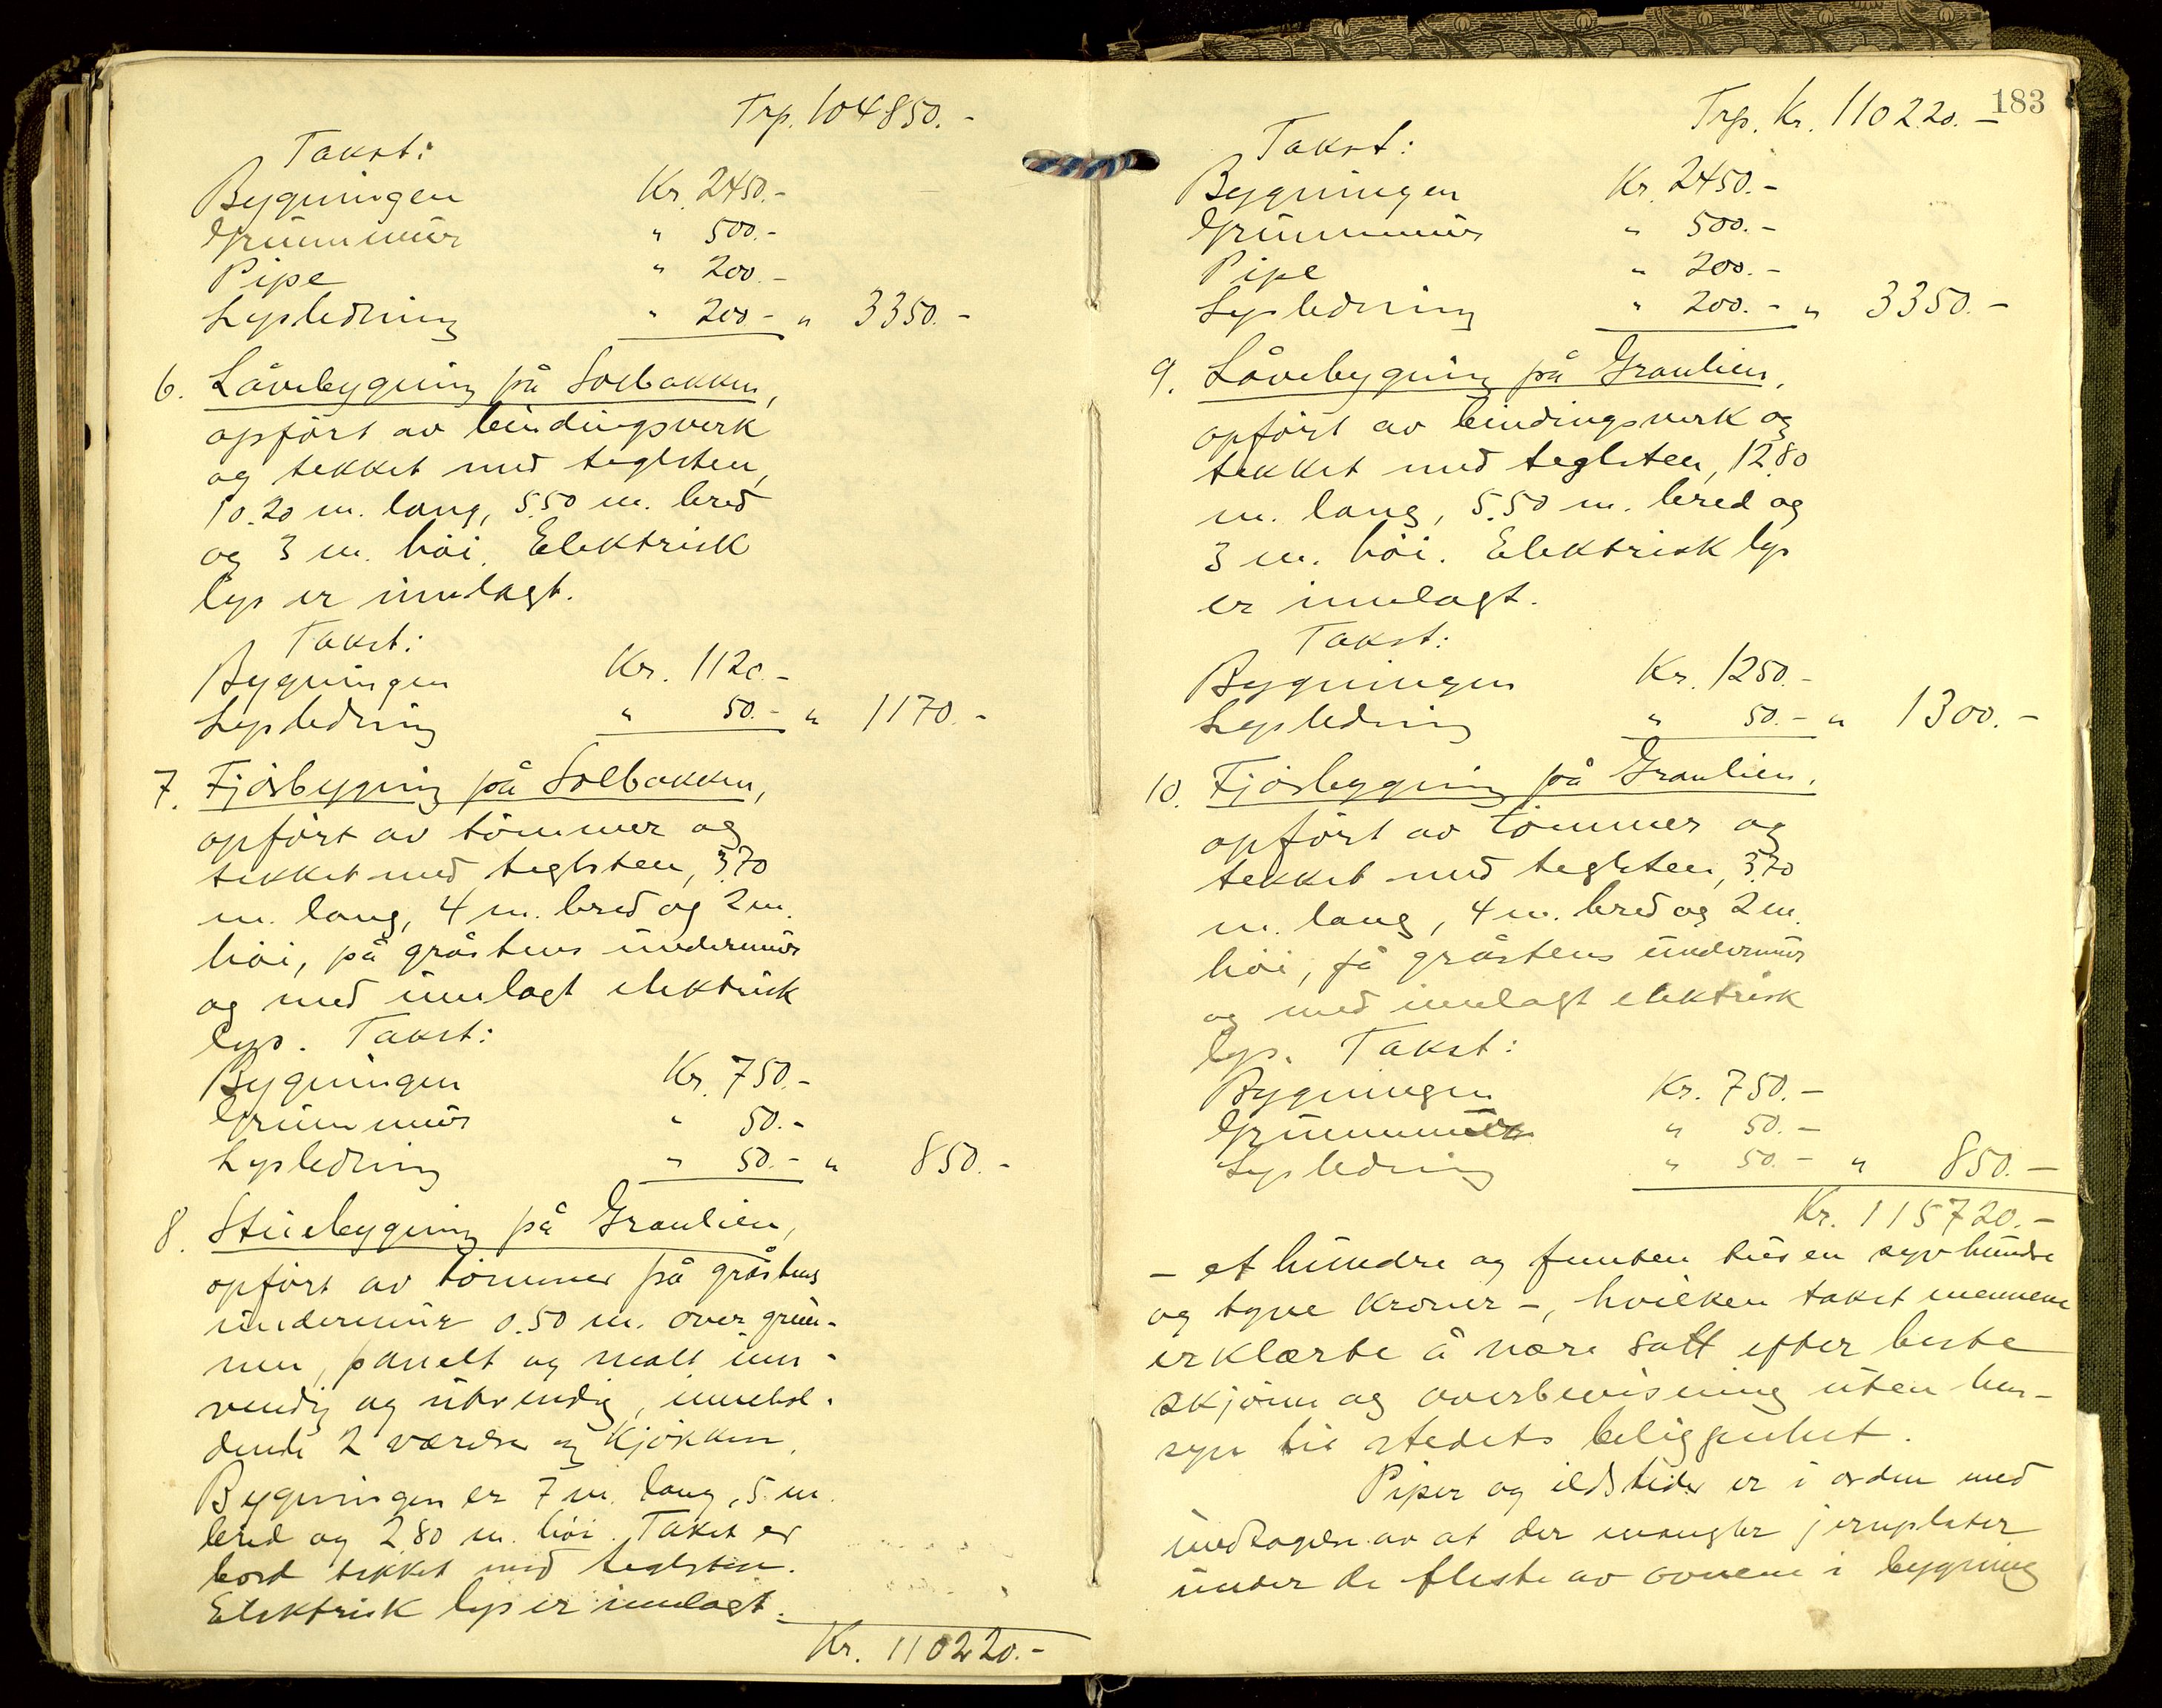 Trp. 104850.-
Takst:
Bygningen Kr. 2450.-
Grunnmur " 500.-
Pipe " 200.-
Lysledning " 200.- " 3350.-
6. Låvebygning på Solbakken,
opført av bindingsverk
og tekket med teglsten,
10.20 m. lang, 5.50 m. bred
og 3 m. høi. Elektrisk
lys er innlagt.
Takst:
Bygningen Kr. 1120.-
Lysledning " 50.- " 1170.-
7. Fjøsbygning på Solbakken,
opført av tømmer og
tekket med teglsten, 3.70
m. lang, 4 m. bred og 2 m.
høi, på gråstens undermur
og med innlagt elektrisk
lys. Takst:
Bygningen Kr. 750.-
Grunnmur " 50.-
Lysledning " 50.- " 850.-
8. Stuebygning på Granlien,
opført av tømmer på gråstens
undermur 0.50 m. over grun-
nen, panelt og malt inn-
vendig og utvendig, innehol-
dende 2 værelser og kjøkken.
Bygningen er 7 m. lang, 5 m.
bred og 2.80 m. høi. Taket er
bord tekket med teglsten.
Elektrisk lys er innlagt.
Kr. 110220.-
183
Trp. Kr. 110220.-
Takst:
Bygningen Kr. 2450.-
Grunnmur " 500.-
Pipe " 200.-
Lysledning " 200.- " 3350.-
9. Låvebygning på Granlien,
opført av bindingsverk og
tekket med teglsten, 12.80
m. lang, 5.50 m. bred og
3 m. høi. Elektrisk lys
er innlagt.
Takst:
Bygningen Kr. 1250.-
Lysledning " 50.- " 1300.-
10. Fjøsbygning på Granlien,
opført av tømmer og
tekket med teglsten, 3.70
m. lang, 4 m. bred og 2 m.
høi, på gråstens undermur
og med innlagt elektrisk
lys. Takst:
Bygningen Kr. 750.-
Grunnmur " 50.-
Lysledning " 50.- " 850.-
Kr. 115720.-
- et hundre og femten tusen syv hundre
og tyve kroner -, hvilken takst mennene
erklærte å være satt efter beste
skjønn og overbevisning uten hen-
syn til stedets beliggenhet.
Piper og ildsteder er i orden med
undtagelse av at der mangler jernplater
under de fleste av ovnene i bygning